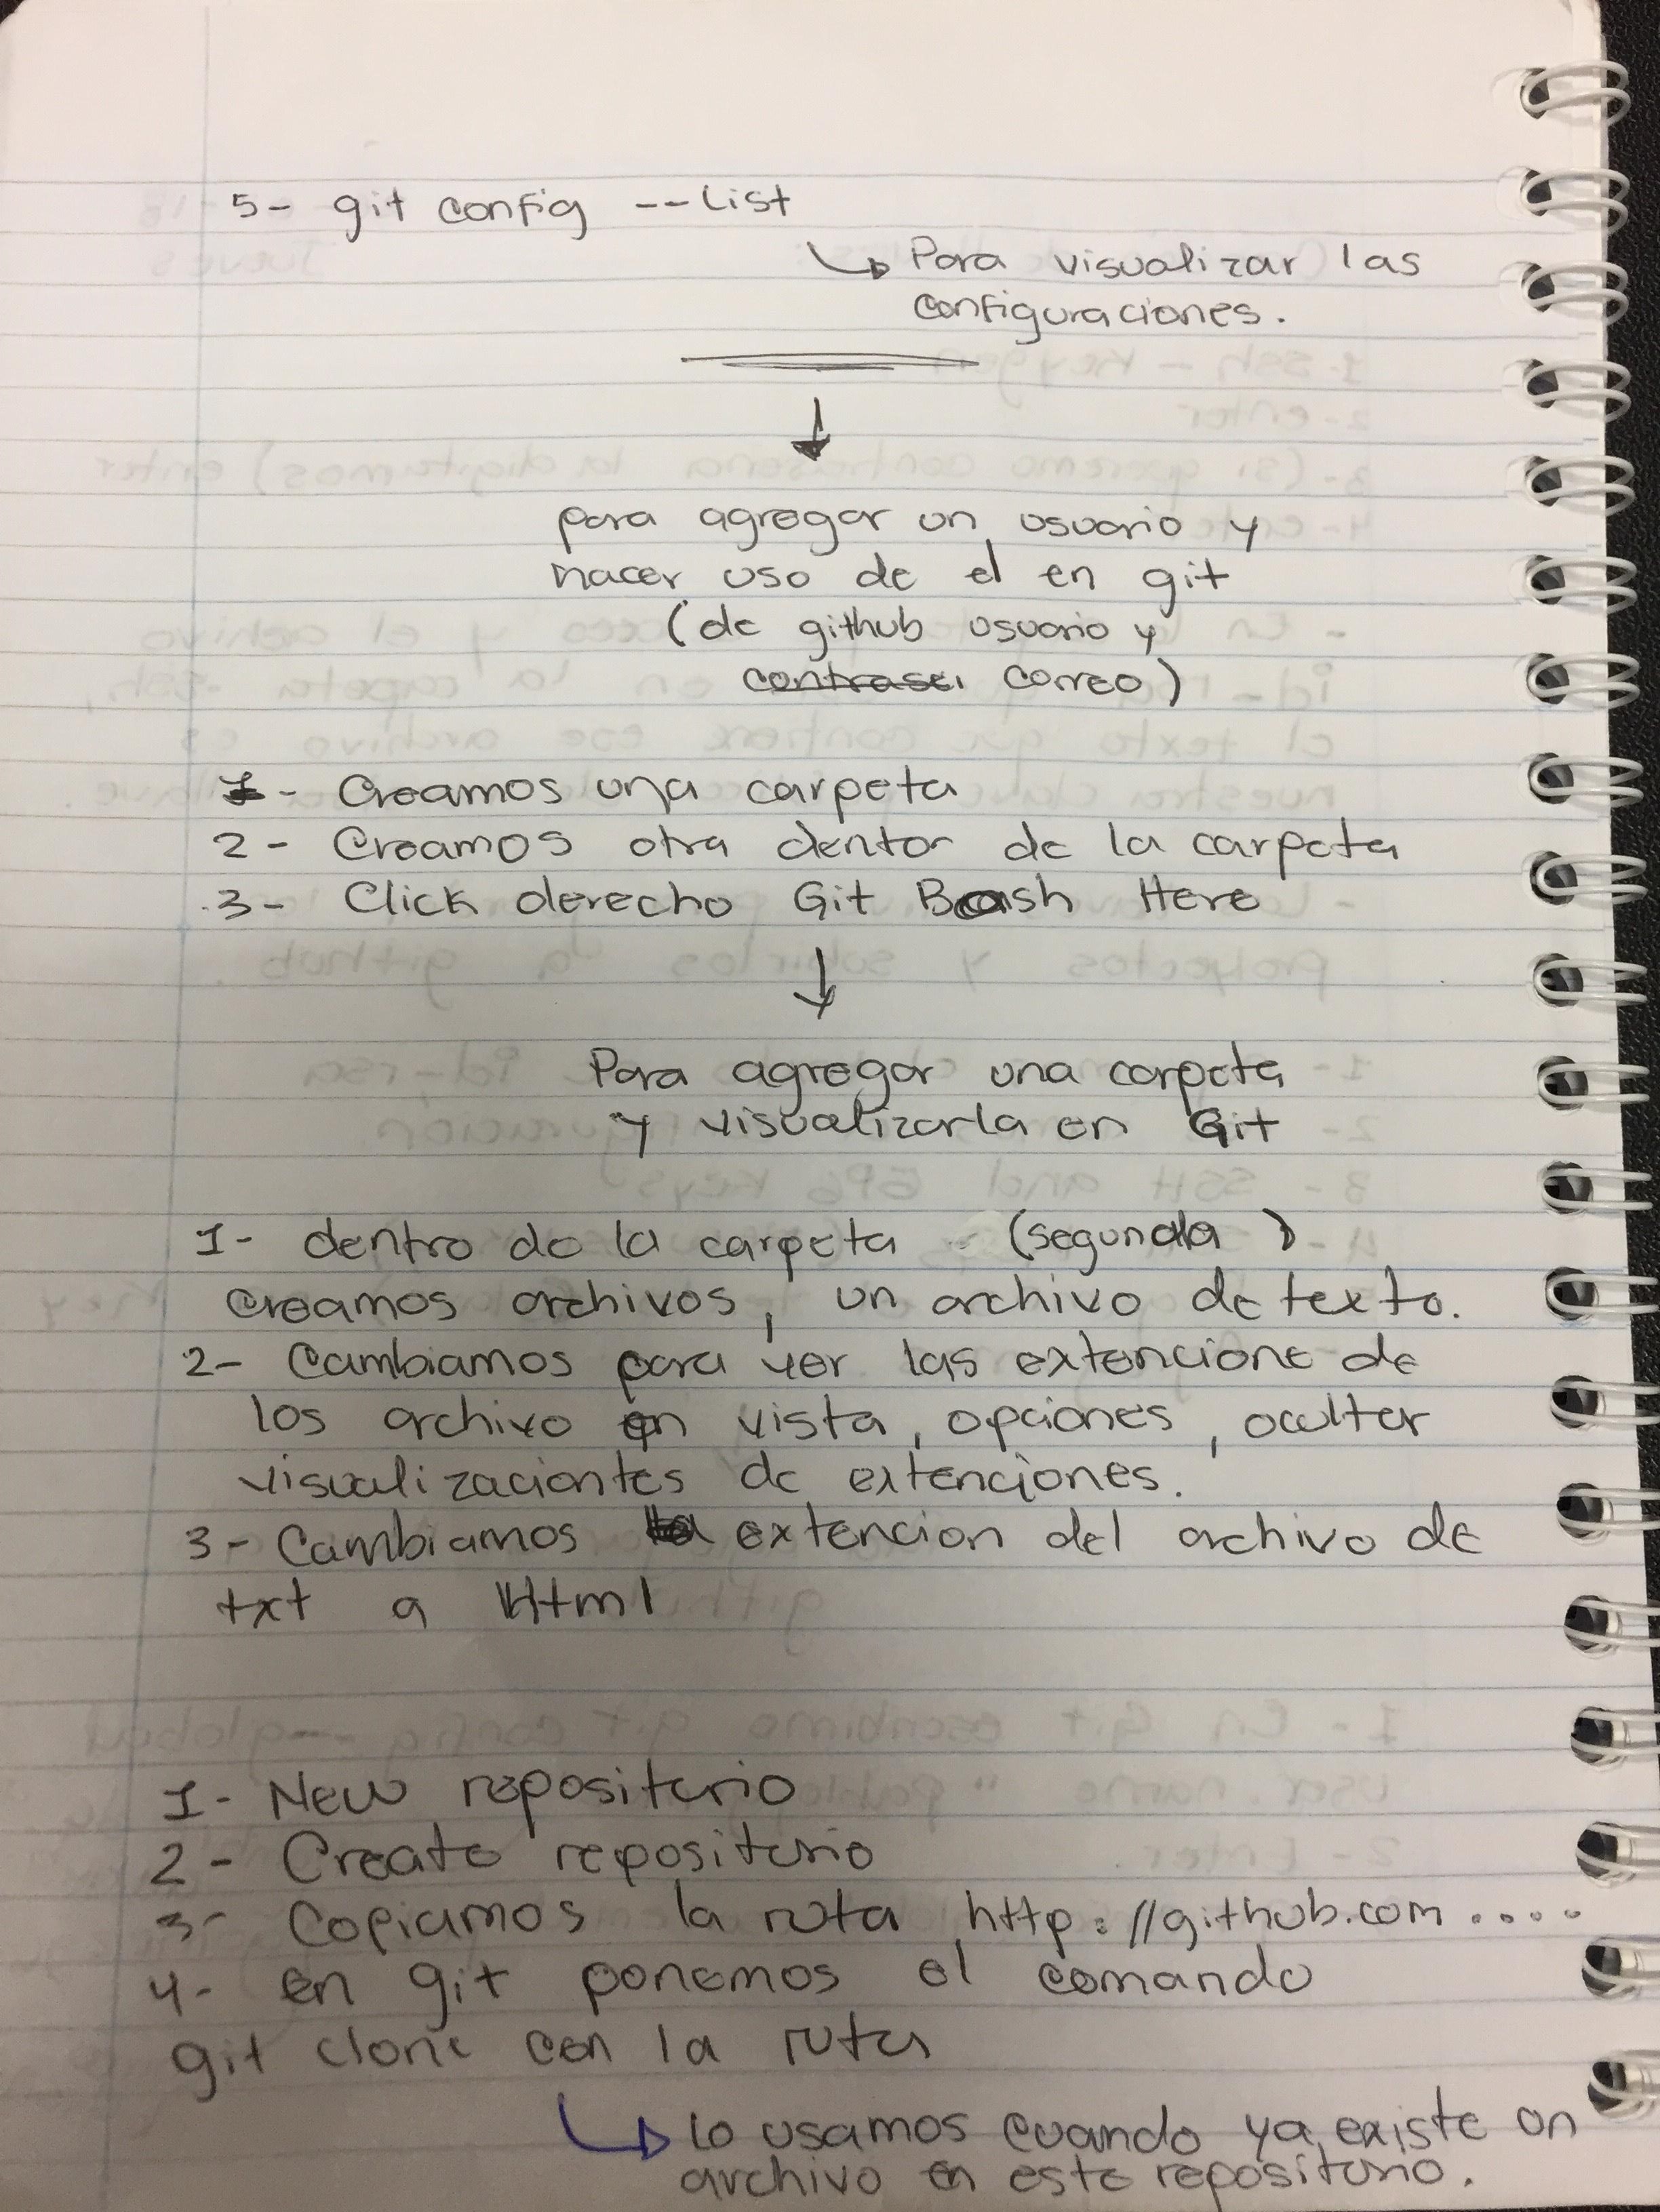 5- git config --list
Para visualizar las
configuraciones.
para agregar un usuario y
hacer uso de el en git
(de github usuario y
contrase correo)
1- Creamos una carpeta
2- Creamos otra dentor de la carpeta
3- Click derecho Git Bash Here
Para agregar una carpeta
y visualizarla en Git
1- dentro de la carpeta (segunda)
creamos archivos, un archivo de texto.
2- Cambiamos para ver las extencione de
los archivo en vista, opciones, oculter
visualizaciontes de extenciones.
3- Cambiamos la extencion del archivo de
txt a Html
1- New repositorio
2- Create repositorio
3- Copiamos la ruta http://github.com ....
4- en git ponemos el comando
git clone con la ruta
lo usamos cuando ya existe un
archivo en este repositorio.